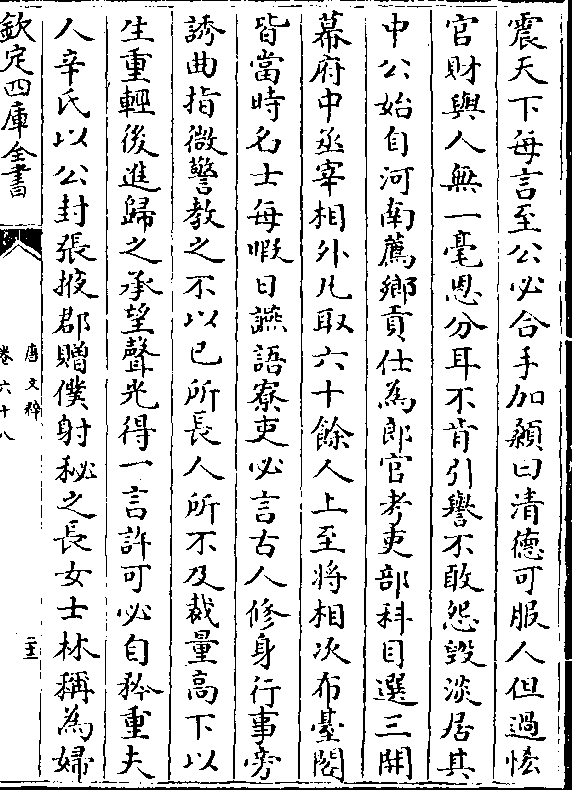 震天下每言至公必合手加顙曰清德可服人但過恡
官財與人無一毫恩分耳不肯引譽不敢怨毀淡居其
中公始自河南薦鄉貢仕為郎官考吏部科目選三開
幕府中丞宰相外凡取六十餘人上至將相次布臺閣
皆當時名士每暇日讌語寮吏必言古人修身行事旁
誘曲指微警教之不以己所長人所不及裁量高下以
生重輕後進歸之承望聲光得一言許可必自矜重夫
人辛氏以公封張掖郡贈僕射秘之長女士林稱為婦
欽定四庫全書
唐文粹
卷六十八